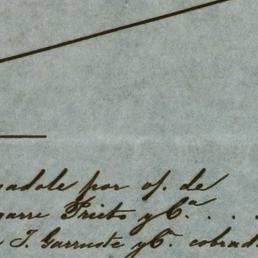 adole por of. de
arre Prieto y Cª . . .
J. Garruste y Cª. cobrad